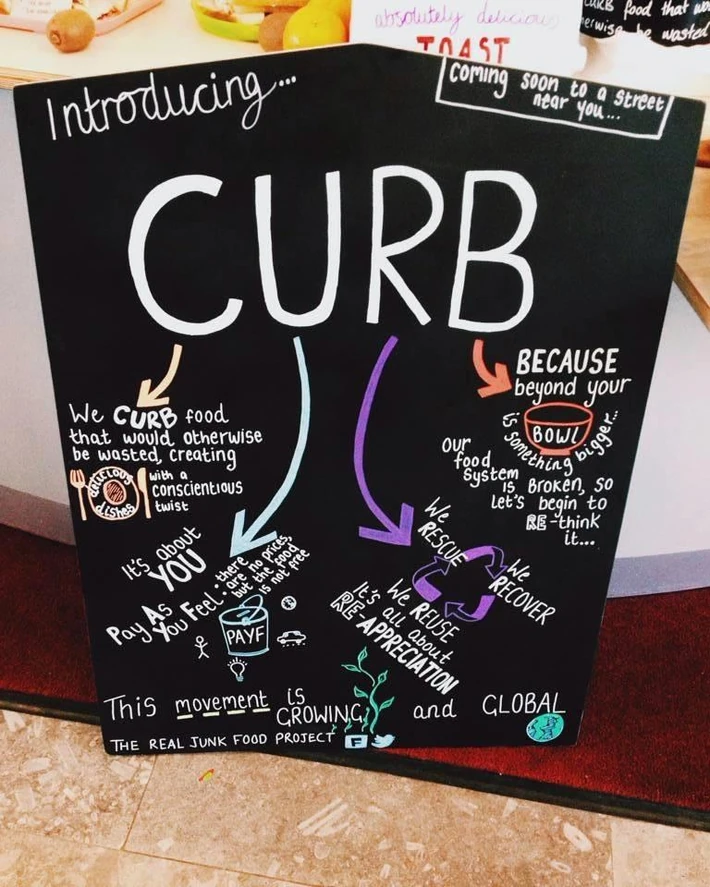 absolutely delicious
TOAST
CURB food that wo
erwise be wasted
Introducing...
coming soon to a street
near you...
CURB
We CURB food
that would otherwise
be wasted, creating
delicious
dishes
with a
conscientious
twist
BECAUSE
beyond your
BOWL
is something bigger...
our
food
system
is Broken, so
let's begin to
RE-think
it...
It's about
YOU
Pay As
You Feel:
there
are no prices,
but the food
is not free
PAYF
We
RESCUE
We
RECOVER
We REUSE
It's all about
RE-APPRECIATION
This movement is
GROWING and GLOBAL
THE REAL JUNK FOOD PROJECT F